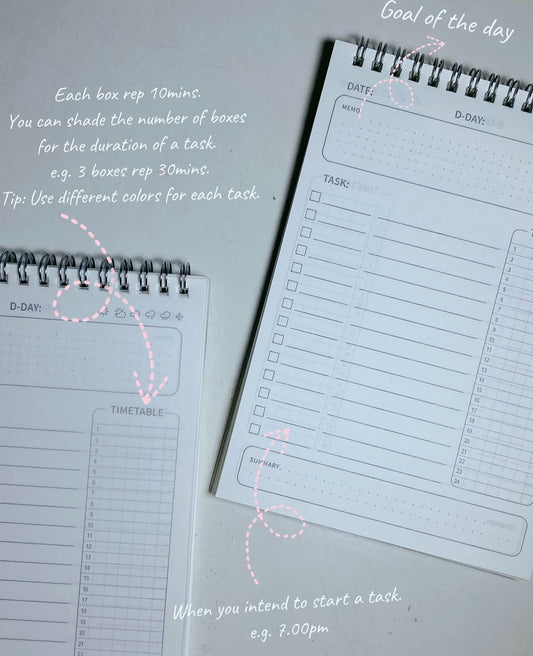 Goal of the day
Each box rep 10mins.
You can shade the number of boxes
for the duration of a task.
e.g. 3 boxes rep 30mins.
Tip: Use different colors for each task.
DATE:
D-DAY:
MEMO
TASK:
1
2
3
4
5
6
7
8
9
10
11
12
13
14
15
16
17
18
19
20
21
22
23
24
SUMMARY.
D-DAY:
TIMETABLE
1
2
3
4
5
6
7
8
9
10
11
12
13
14
15
16
17
18
19
20
21
22
When you intend to start a task.
e.g. 7.00pm